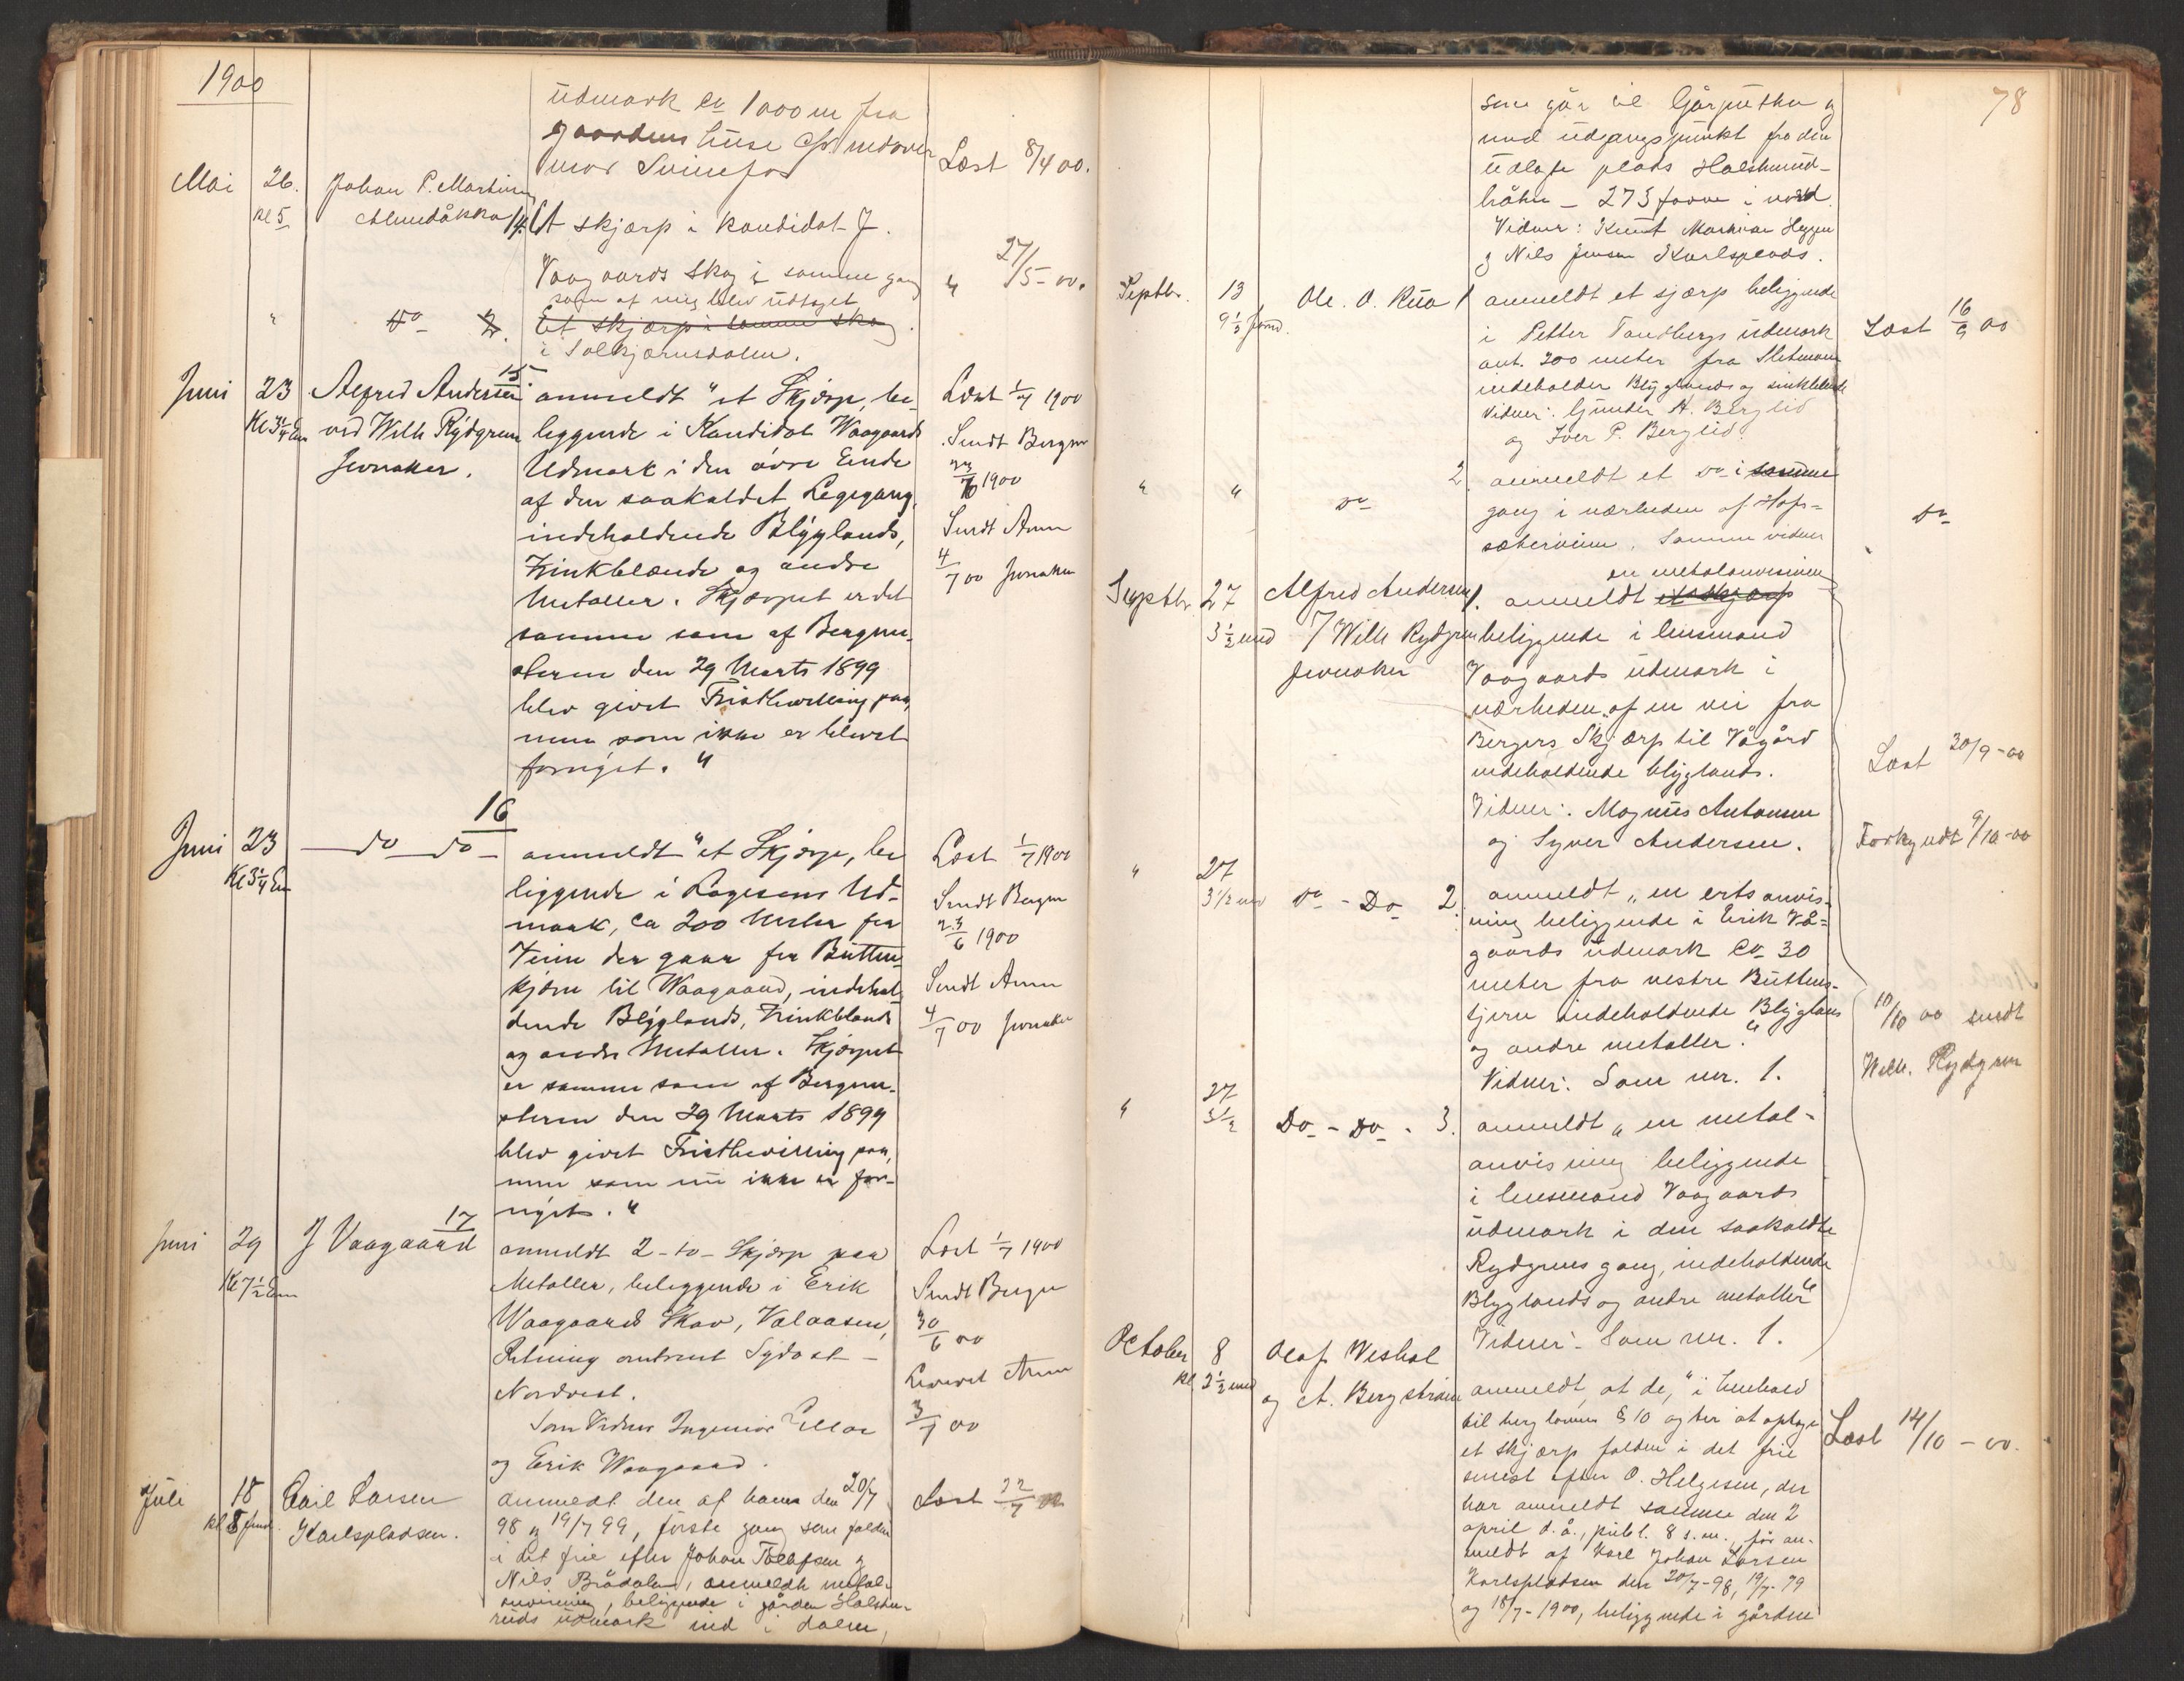 1900
udmark ca 1000 m fra
gaardens huse
mod
Læst 8/4 00.
Mai 26. Johan P. Martinsen
kl 5 14. Et skjærp i kandidat J.
Vaagaards skog i samme gang
som af mig blev udtaget
" 27/5-00.
" do 2. Et skjærp i samme skog.
i Solkjærnsdalen.
Juni 23 Alfred Andersen 15 anmeldt "et Skjærp, be-
Kl 3 1/4 Em ved Wilh Rydgren liggende i Kandidat Waagaards
Jevnaker. Udmark i den øvre Ende
af den saakaldet Legegang,
indeholdende Blyglands,
Zinkblende og andre
Metaller. Skjærpet er det
samme som af Bergme-
steren den 29 Marts 1899
blev givet Fristbevilling paa,
men som ikke er blevet
fornyet. "
Læst 1/7 1900
Sendt Bergm
1900
Sendt Amm
4/7 00 Jevnaker
16
Juni 23 do do anmeldt "et Skjærp, be
Kl 3 1/4 Em liggende i Lagesens Ud-
mark, ca 200 Meter fra
Veien der gaar fra Butten-
kjern til Waagaard, indehol-
dende Blyglands, Zinkblende
og andre Metaller. Skjærpet
er samme som af Bergme-
steren den 29 Marts 1899
blev givet Fristbevilling paa,
men som nu ikke er for-
nyet. "
Læst 1/7 1900
Sendt Bergm
23/6 1900
Sendt Amm
4/7 00 Jevnaker
17
Juni 29 J Vaagaard anmeldt 2 - to - Skjærp paa
Kl 7 1/2 Em Metaller, beliggende i Erik
Waagaards Skov, Valaasen,
Retning omtrent Sydost -
Nordvest.
Som Vidner Ingeniør
og Erik Waagaard.
Læst 1/7 1900
Sendt Bergm
30/6 00
Leveret Amm
3/7 00
Juli 18 Carl Larsen anmeldt den af ham den 20/7
kl 8 fmd. Karlspladsen. 98 og 19/7 99, første gang som falden
i det frie efter Johan Tollefsen og
Nils Brådalen, anmeldte metal-
anvisning, beliggende i gården Halstun-
ruds udmark ind i dalen,
Læst 22/7 00
78
som går til og
med udgangspunkt fra den
udlagte plads
275 favne i nord.
Vidner: Knut Markusen Heggen
og Nils Jensen Karlsplads.
Septbr. 13 Ole. O. Rua 1 anmeldt et sjærp beliggende
9 1/2 fmd. i Petter Tandbergs udmark
ant. 200 meter fra
indeholder Blyglands og sinkblende
Vidner: Gunder A. Berglid
og Iver P. Berglid.
Læst 16/9 00
" " do 2. anmeldt et do i samme
gang i nærheden af Hofs-
sæterveien. Samme vidner
do
en metalanvisning
Septbr. 27 Alfred Andersen 1. anmeldt et skjærp
3 1/2 emd / Wilh Rydgren beliggende i lensmand
Jevnaker Vaagaards udmark i
nærheden af en vei fra
Bergers Skjærp til Vågård
indeholdende blyglands.
Vidner: Magnus Antonsen
og Syver Andersen.
Læst 30/9-00
Forkyndt 9/10-00
" 27
3 1/2 emd do - Do 2. anmeldt "en ertsanvis-
ning beliggende i Erik Vå-
gaards udmark ca 30
meter fra vestre Buttens-
tjern indeholdende Blyglans
og andre metaller."
Vidner: Som nr. 1.
10/10 00 sendt
Wilh. Rydgren
" 27
3 1/2 Do - Do - 3. anmeldt "en metal-
anvisning beliggende
i lensmand Vaagaards
udmark i den saakaldte
Rydgrens gang, indeholdende
Blyglands og andre metaller"
Vidner: Som nr. 1.
October 8 Olaf Weshol
kl 2 1/2 emd og A. Bergstrøm anmeldt, at de, "i henhold
til berglovens § 10 agter at optage
et skjærp falden i det frie
senest efter O. Helgesen, der
har anmeldt samme den 2
april d. å., publ. 8 s. m., før an-
meldt af Karl Johan Larsen
Karlspladsen den 20/7-98, 19/7-99
og 18/7-1900, beliggende i gården
Læst 14/10 - 00.